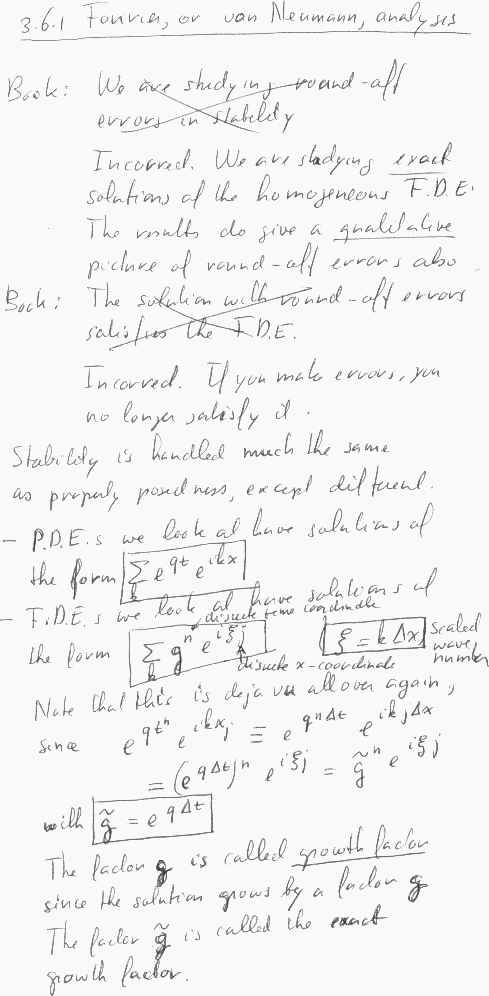 3.6.1 Fourier, or von Neumann, analysis
Book: We are studying round-off
errors in stability
Incorrect. We are studying exact
solutions of the homogeneous F.D.E.
The results do give a qualitative
picture of round-off errors also
Book: The solution with round-off errors
satisfies the F.D.E.
Incorrect. If you make errors, you
no longer satisfy it.
Stability is handled much the same
as properly posedness, except different.
- P.D.E.s we look at have solutions of
the form ∑_k e^{qt} e^{ikx}
- F.D.E.s we look at have solutions of
discrete time coordinate
the form ∑_k g^n e^{iξj} ξ = k Δx scaled wave number
discrete x-coordinate
Note that this is deja vu all over again,
since e^{qt^n} e^{ikx_j} ≡ e^{qnΔt} e^{ikjΔx}
= (e^{qΔt})^n e^{iξj} = g̃^n e^{iξj}
with g̃ = e^{qΔt}
The factor g is called growth factor
since the solution grows by a factor g
The factor g̃ is called the exact
growth factor.